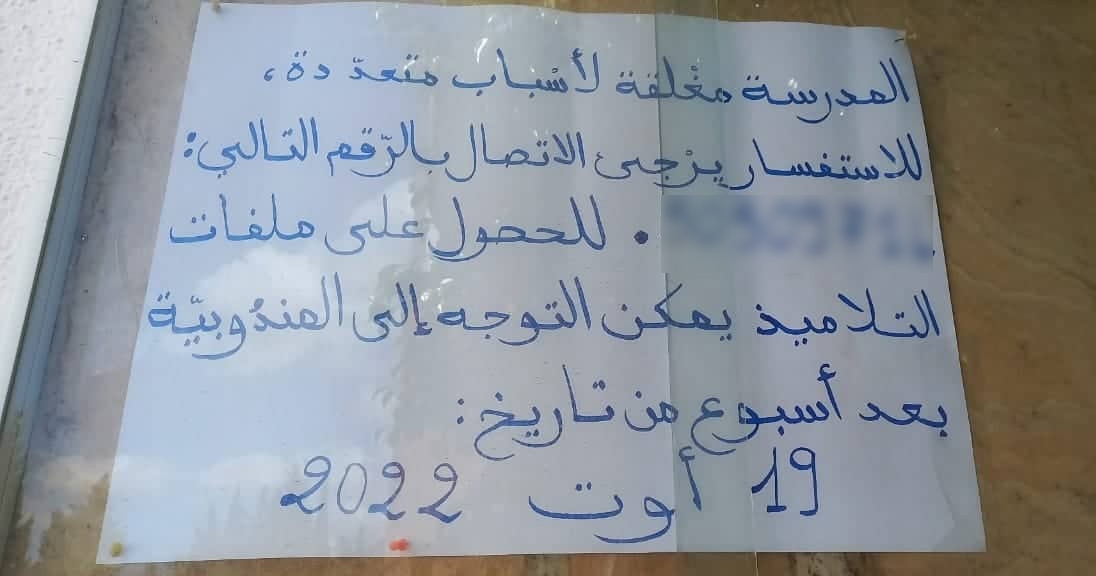 المدرسة مغلقة لأسْباب متعدّدة،
للاستفسار يرْجى الاتصال بالرّقم التالي:
. للحصول على ملفات
التلاميذ يمكن التوجه إلى المندُوبيّة
بعد أسبوع من تاريخ:
19 أوت 2022